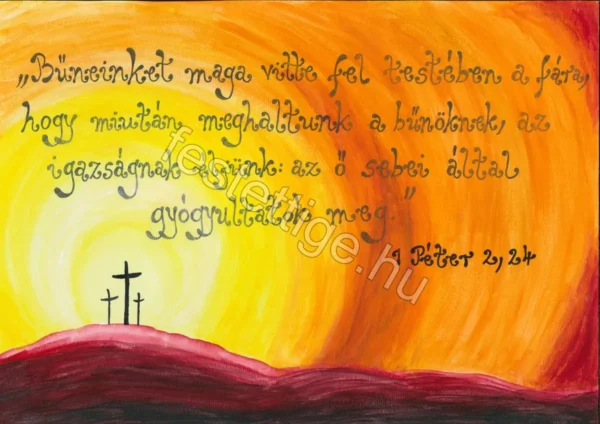 „Bűneinket maga vitte fel testében a fára,
hogy miután meghaltunk a bűnöknek, az
igazságnak éljünk: az ő sebei által
gyógyultatok meg.”
1 Péter 2, 24
festettige.hu